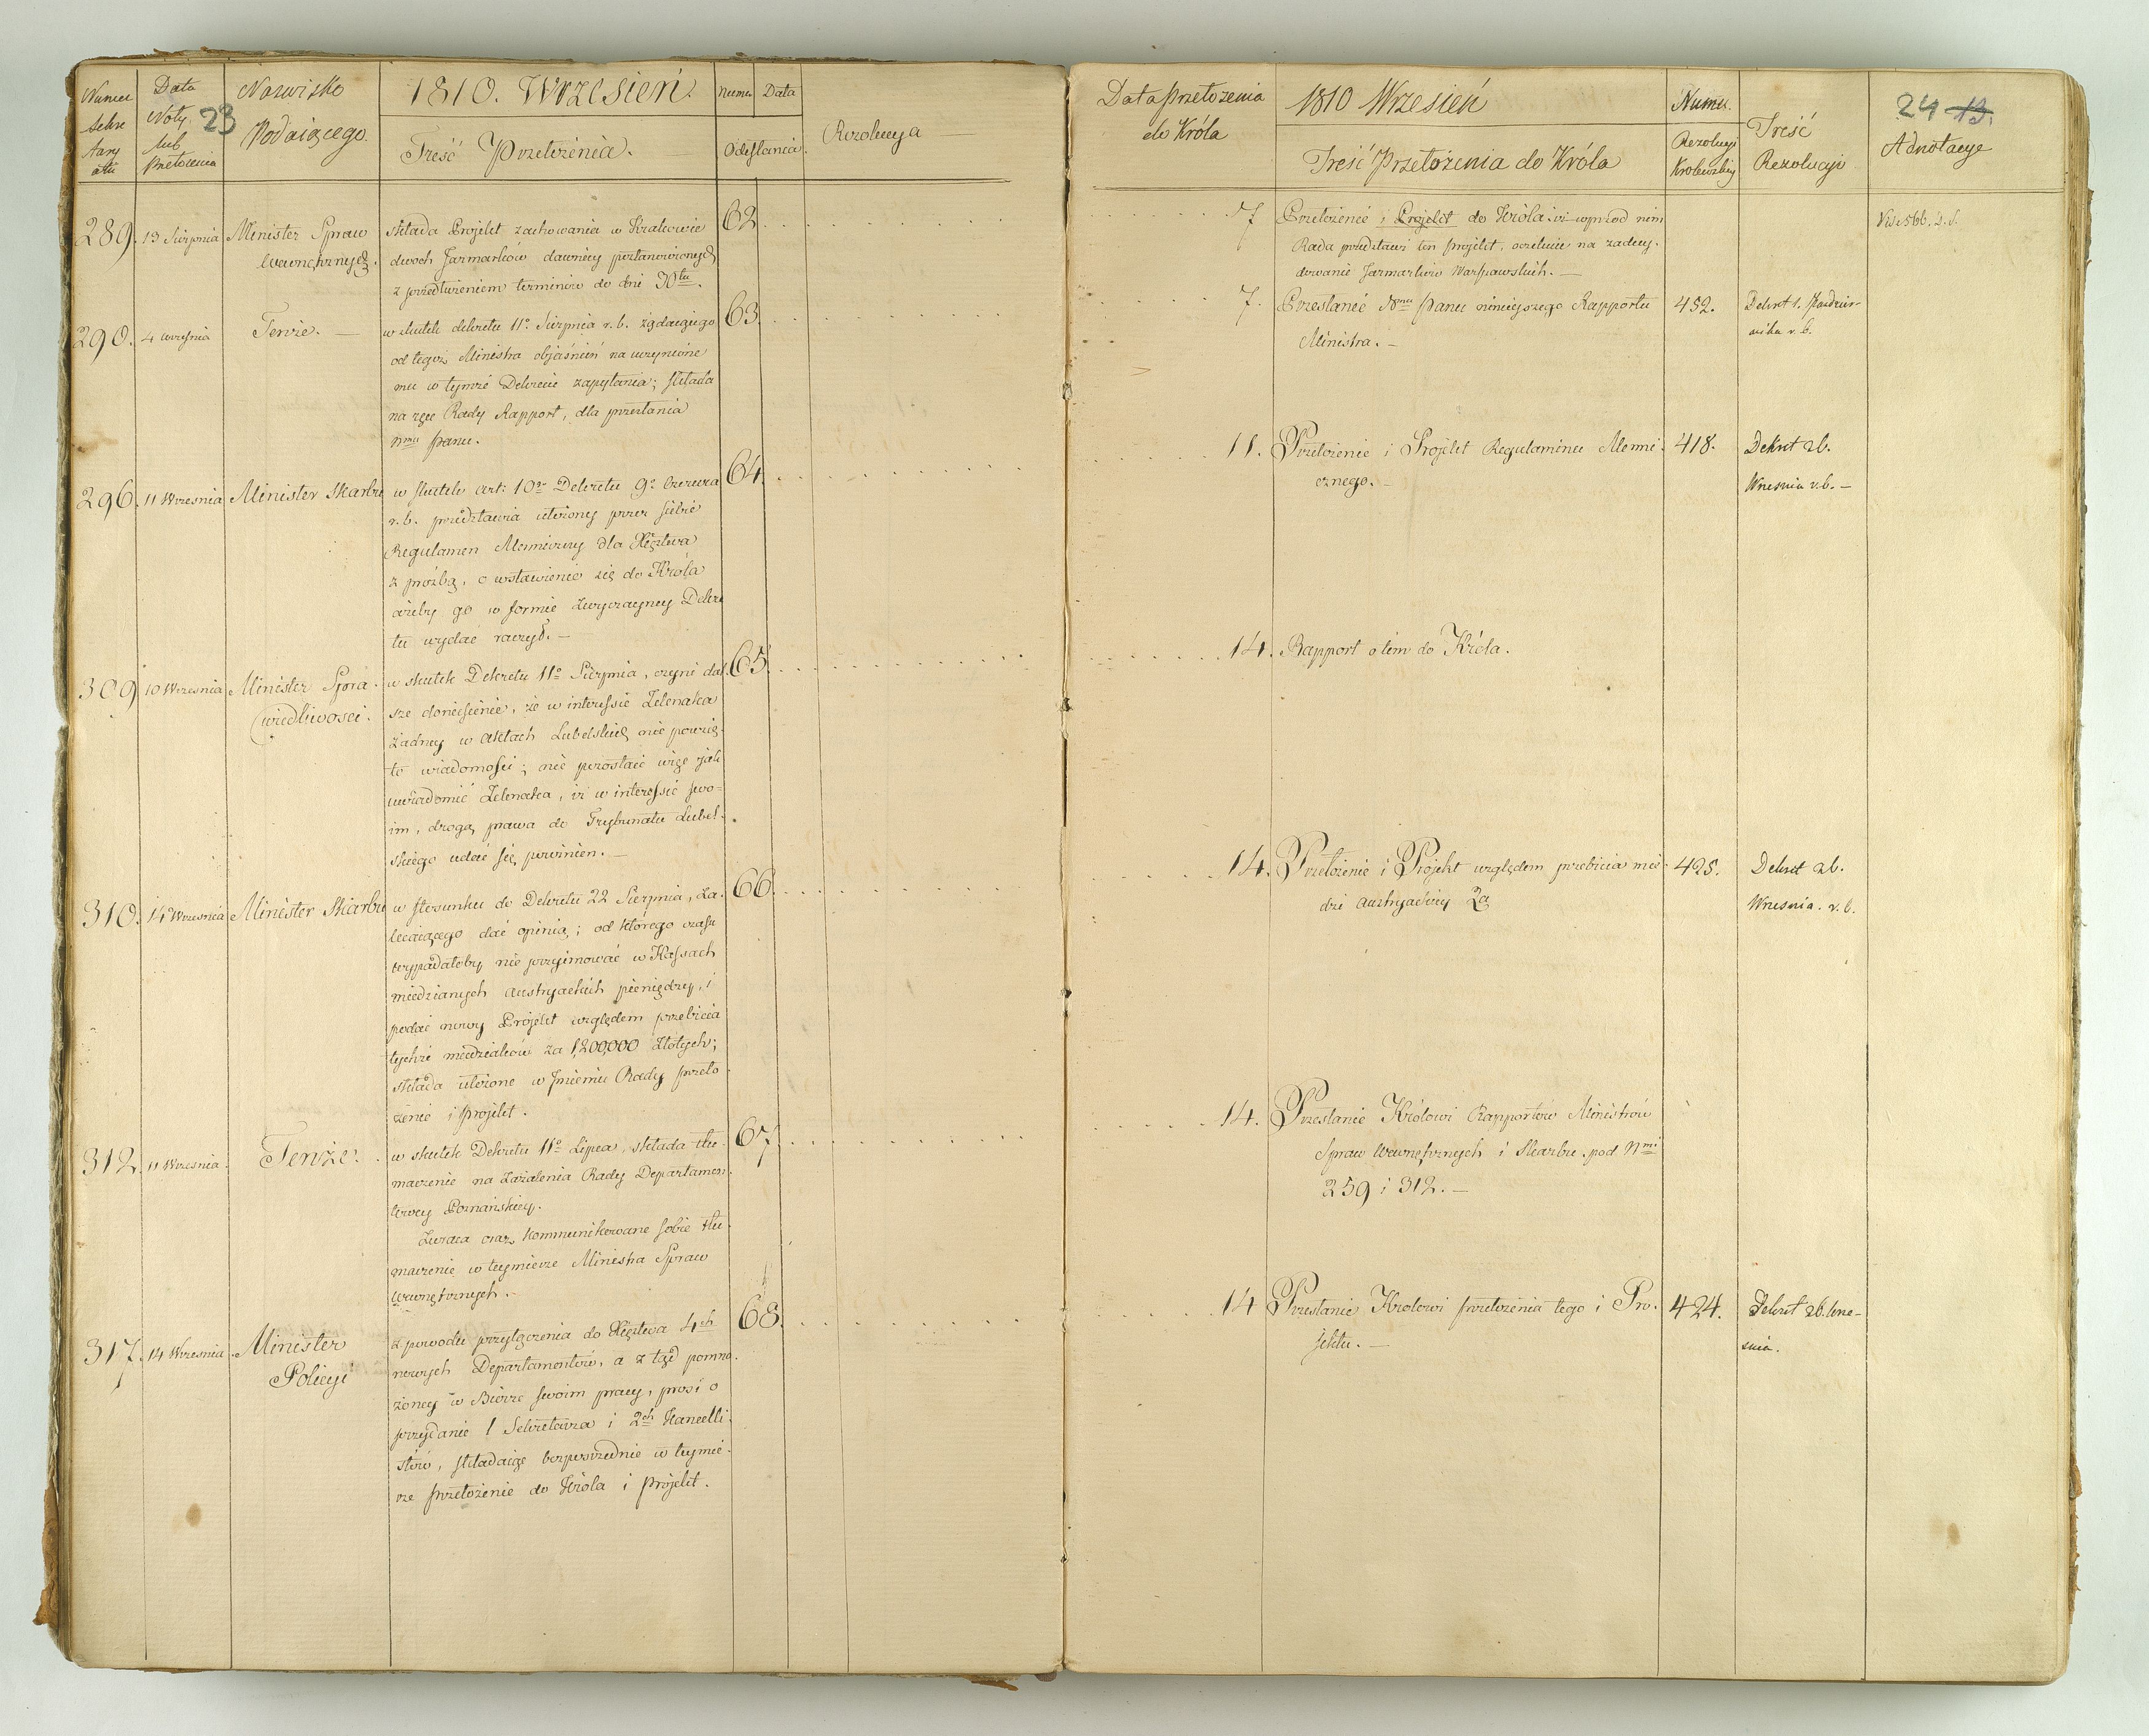 Numer
Sekre
tary
atu
Data
Noty
lub
Przełożenia
23
Nazwisko
Podaiącego.
1810. Wrzesień.
Treść Przełożenia.
Numer
Data
Odesłania.
Rezolucya
289.
13 Sierpnia
Minister Spraw
Wewnętrznych.
składa Projekt zachowania w Krakowie
dwoch Jarmarków dawniey postanowionych
z przedłużeniem terminów do dni 30tu.
62
290.
4 Września
Tenże. —
w skutek dekretu 11o Sierpnia r. b. żądaiącego
od tegoż Ministra objaśnień na uczynione
mu w tymże Dekrecie zapytania; składa
na ręce Rady Rapport, dla przesłania
Nmu Panu.
63.
296.
11 Wrzesnia
Minister Skarbu
w skutek art: 10o Dekretu 9o Czerwca
r. b. przedstawia ułożony przez siebie
Regulamen Menniczny dla Xięztwa
z prożbą, o wstawienie się do Króla
ażeby go w formie zwyczayney Dekre
tu wydać raczył. —
64.
309
10 Wrzesnia
Minister Spra-
wiedliwosci.
w skutek Dekretu 11o Sierpnia, czyni dal-
sze doniesienie, że w interessie Zelenaka
żadney w Aktach Lubelskich nie powzię-
to wiadomości; nie pozostaie więc jak
uwiadomić Zelenaka, iż w interessie swo=
im, drogą prawa do Trybunału Lubel-
skiego udać się powinien. —
65.
310.
14 Wrzesnia
Minister Skarbu
w stosunku do Dekretu 22 Sierpnia, za-
lecaiącego dać opinią; od którego czasu
wypadałoby nie przyimować w Kassach
miedzianych Austryackich pieniędzy, i
podać nowy Projekt względem przebicia
tychże miedziaków za 1,200,000 Złotych;
składa ułożone w Jmieniu Rady przeło
żenie i Projekt.
66.
312.
11 Wrzesnia.
Tenże.
w skutek Dekretu 11o Lipca, składa tłu-
maczenie na Zażalenia Rady Departamen-
towey Poznańskiey.
Zwraca oraz kommunikowane sobie tłu-
maczenie w teymierze Ministra Spraw
Wewnętrznych. —
67.
317.
14 Wrzesnia.
Minister
Policyi
z powodu przyłączenia do Xięztwa 4ch
nowych Departamentów, a z tąd pomno-
żoney w Biórze swoim pracy, prosi o
przydanie 1 Sekretarza i 2ch Kancelli-
stów, składaiąc bezpośrzednie w teymie-
rze przełożenie do Króla i Projekt.
68.
Data Przełożenia
do Króla
1810 Wrzesień
Treść Przełożenia do Króla
Numer
Rezolucyi
Krolewskiey
Treść
Rezolucyi
24 13.
Adnotacye
7
Przełożenie i Projekt do Króla: iż wprzód nim
Rada przedstawi ten projekt, oczekuie na zadecy-
dowanie Jarmarków Warszawskich. —
Vide 566. D. S.
7.
Przesłanie Nmu Panu ninieyszego Rapportu
Ministra. —
452.
Dekret 1. Paździer-
nika r. b.
11.
Przełożenie i Projekt Regulaminu Menni-
cznego. —
418.
Dekret 26.
Wrzesnia r. b. —
14.
Rapport o tém do Króla.
14.
Przełożenie i Projekt względem przebicia mie-
dzi Austryackiey
425.
Dekret 26.
Wrzesnia. r. b.
14.
Przesłanie Królowi Rapportów Ministrów
Spraw Wewnętrznych i Skarbu. pod Nmi
259 i 312. —
14
Przesłanie Krolowi przełożenia tego i Pro-
jektu. —
424.
Dekret 26. Wrze-
snia.